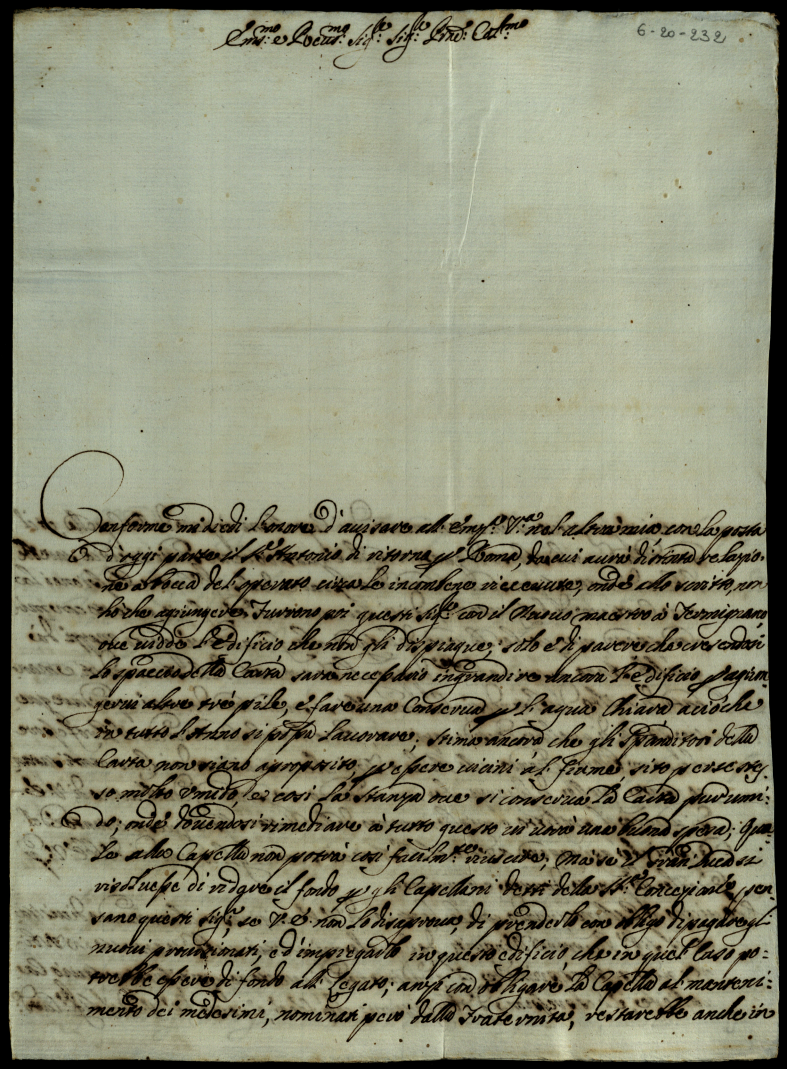 Em.mo e Rev.mo Sig.re Sig.re Prõn Col.mo
6-20-232
Conforme mi diedi l'onore d'avisare all'Em.za V.ra nel altra mia, con la posta
d'oggi parte il Sr Antonio di ritorno p Roma, da cui avrà distinta relazio-
ne a bocca del operato circa le incombenze riceveute, onde allo scritto, non
hò che agiungere. Furono poi questi Sig.ri con il Nuovo maestro à Fermignano
ove vidde l'Edificio che non gli dispiaque; solo è di parere che crescendosi
lo spaccio della Carta sarà necessario ingrandire ancora l'edificio p agiun-
gervi altre trè pile, e fare una Conserva p l'aqua chiara acciò che
in tutto l'Anno si possa lavorare; stima ancora che gli Spanditori della
Carta non siano a proposito p essere vicini al fiume, sito per se stes-
so molto umido, e così la stanza ove si conserva la Carta pur umi-
do; onde dovendosi rimediare à tutto questo vi vorrà una buona spesa; Qua-
le alla Capella non potrà così facilm.te riuscire, ma se il Gran Duca si
risolvesse di ridure il fondo p gli Capellani detti della SS. Concezione, pen-
sano questi Sig.ri se V.E. non lo disaprova, di prenderlo con obligo di pagare gli
nuovi provisionati, e d'impiegarlo in questo edificio, che in quel caso po-
trebbe essere di fondo all Legato; anzi con obligare la Capella al manteni-
mento dei medesimi, nominati però dalla Fraternita, restarebbe anche in